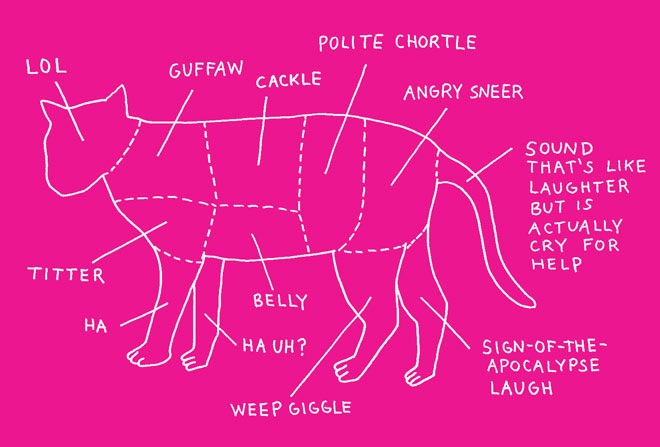 POLITE CHORTLE
LOL
GUFFAW
CACKLE
ANGRY SNEER
SOUND
THAT'S LIKE
LAUGHTER
BUT IS
ACTUALLY
CRY FOR
HELP
TITTER
BELLY
HA
HA UH?
SIGN-OF-THE-
APOCALYPSE
LAUGH
WEEP GIGGLE